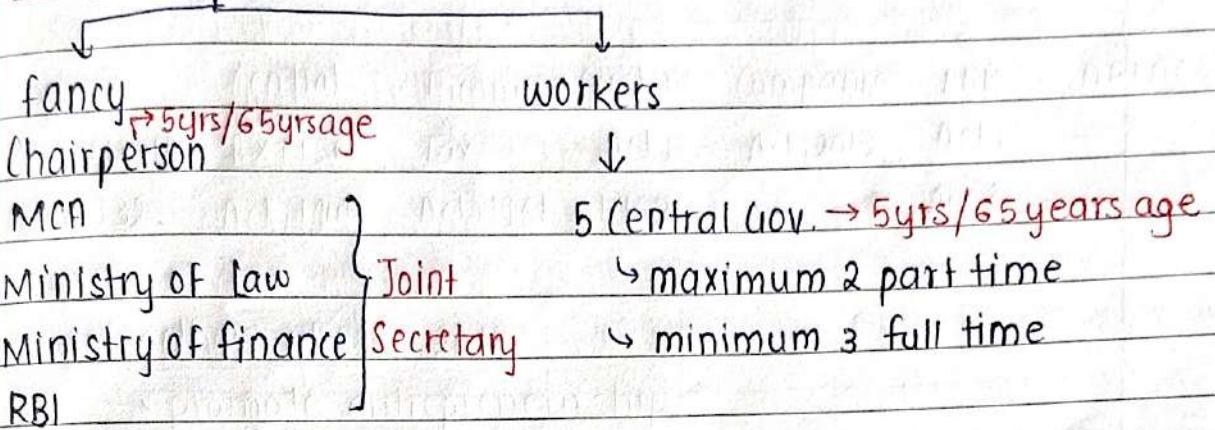 fancy
→ 5yrs/65yrsage
Chairperson
MCA
Ministry of law
Ministry of finance
RBI
Joint
Secretary
workers
↓
5 Central Gov. → 5yrs/65years age
↳ maximum 2 part time
↳ minimum 3 full time